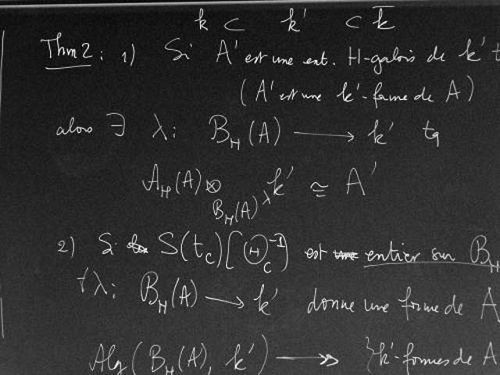 k ⊂ k' ⊂ k̄
Thm 2 : 1) Si A' est une ext. H-galois de k' t
(A' est une k'-forme de A)
alors ∃ λ : B_H(A) ⟶ k' tq
A_H(A) ⊗_{B_H(A)} λk' ≃ A'
2) Si S(t_C)[Θ_C^{-1}] est entier sur B_H
∀λ : B_H(A) ⟶ k' donne une forme de A
Alg(B_H(A), k') ↠ {k'-formes de A